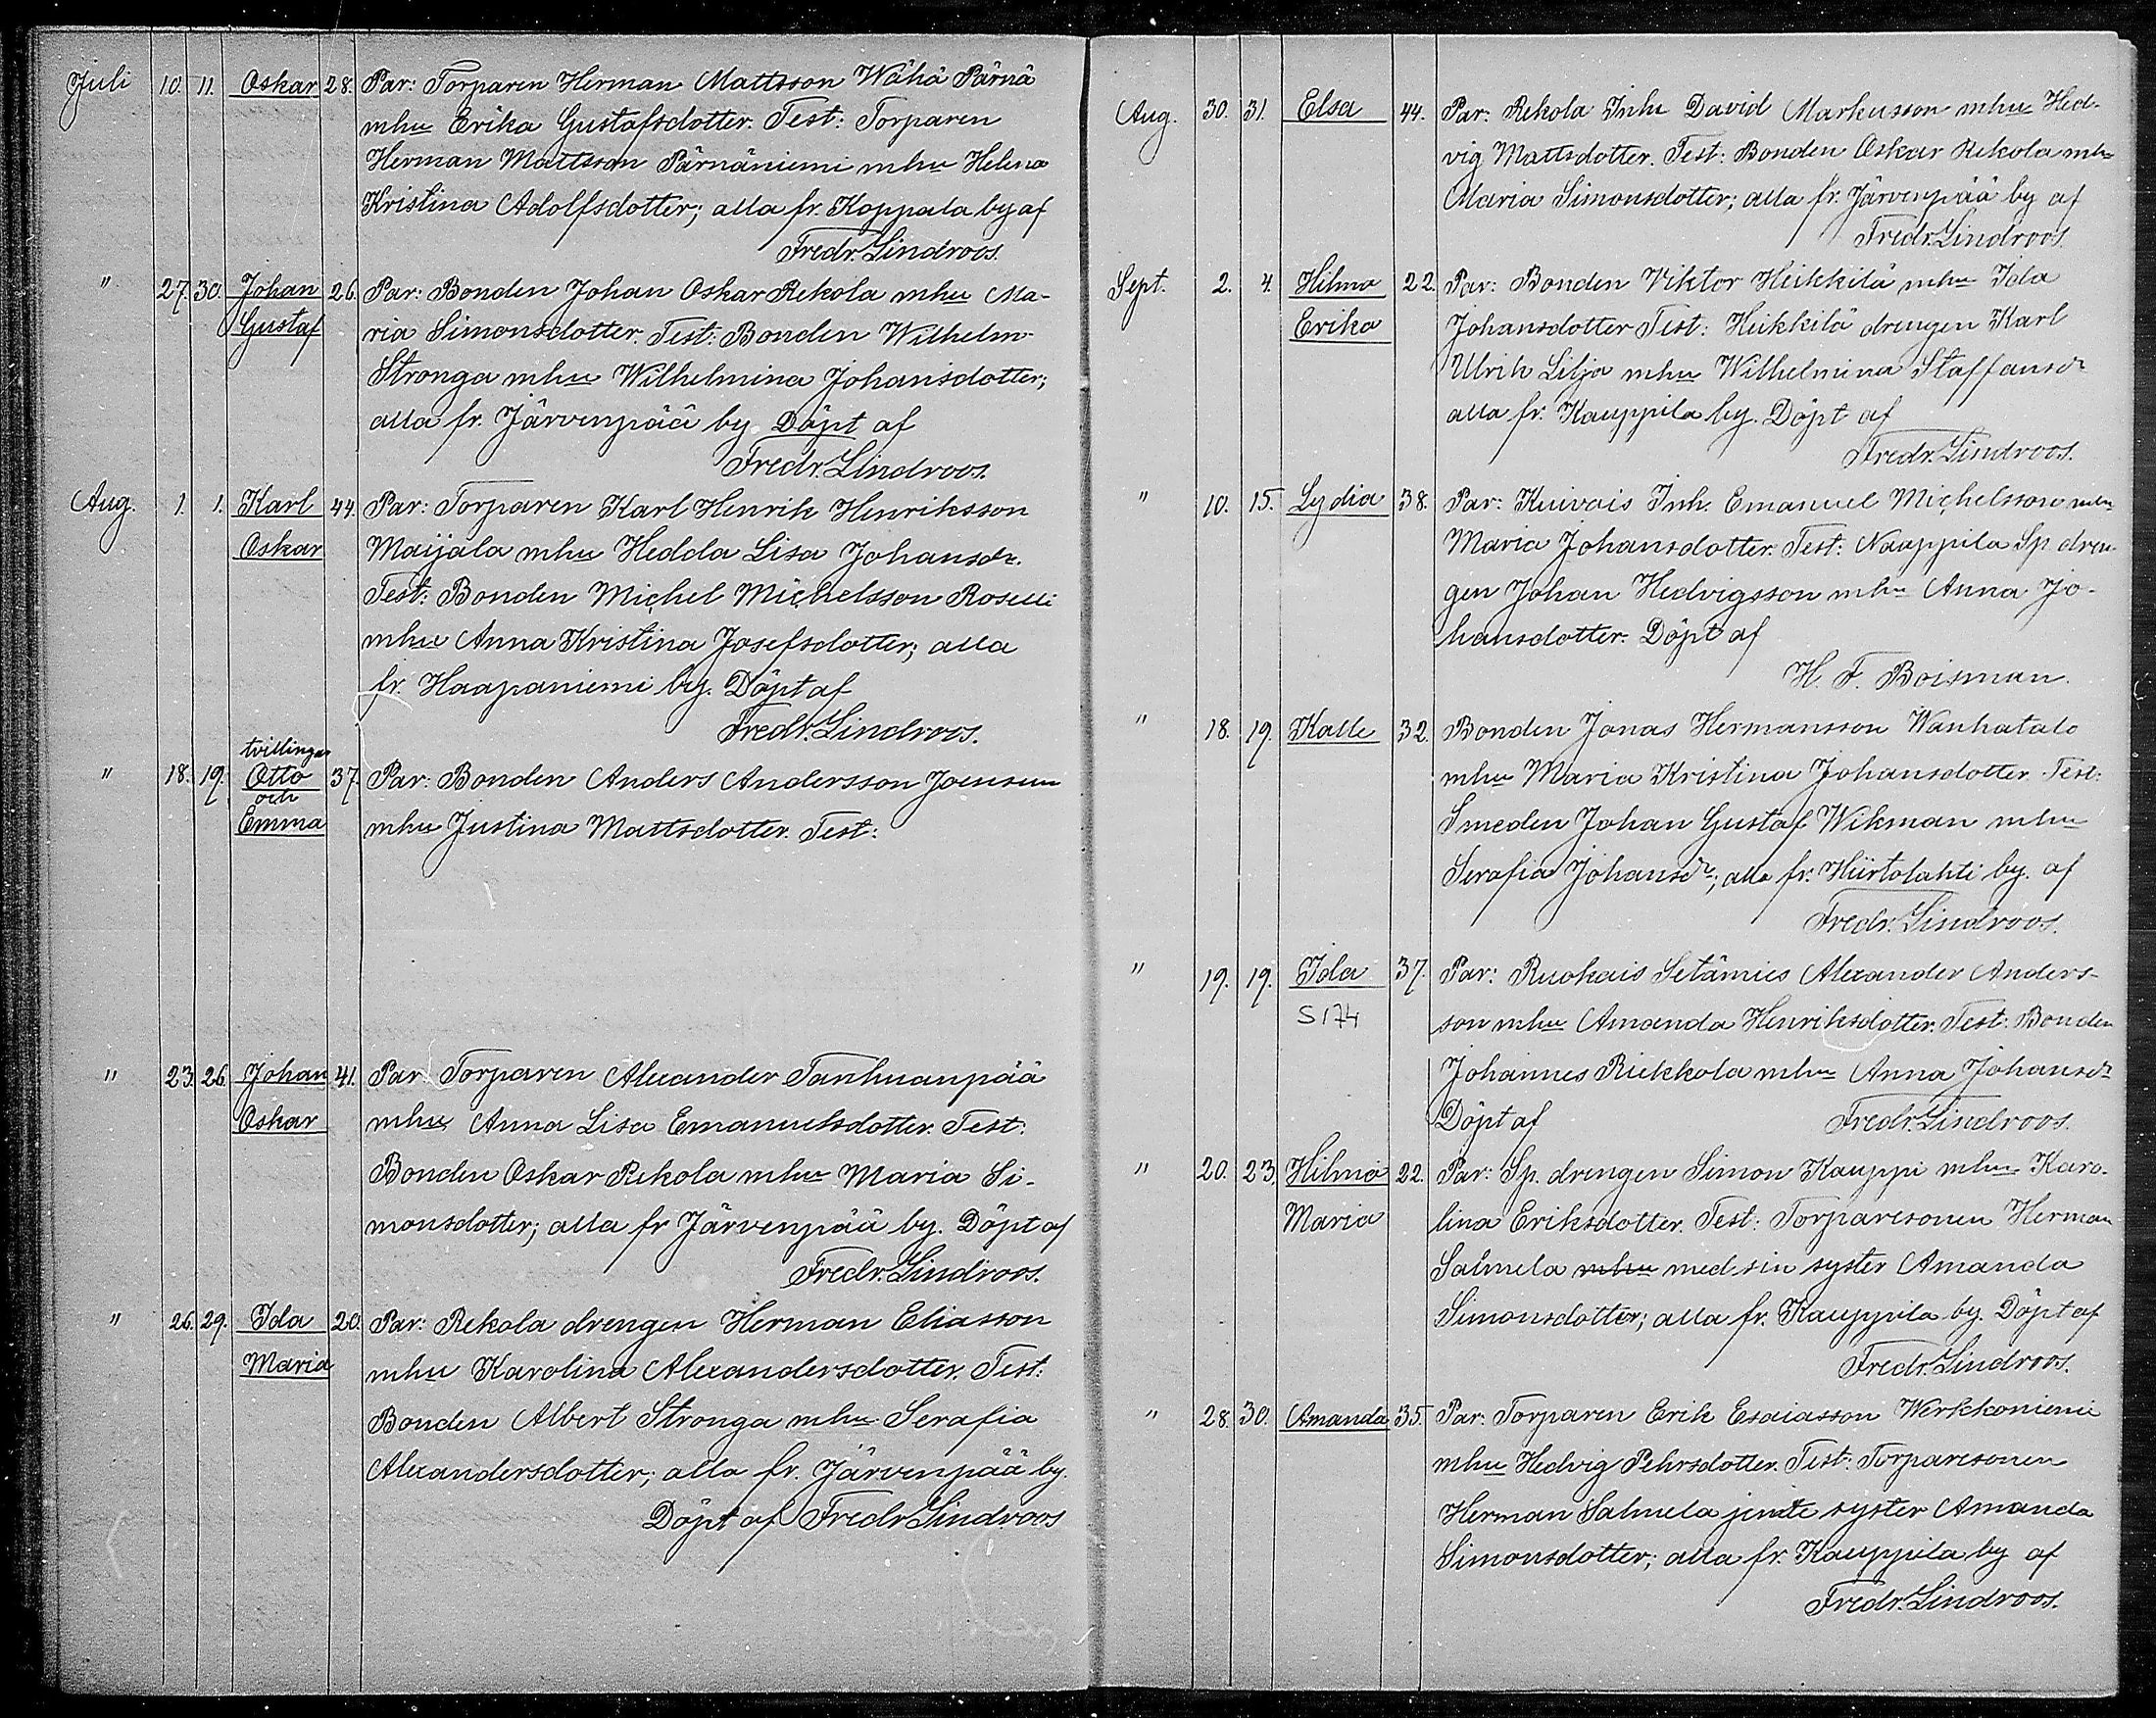 Juli 10. 11. Oskar 28. Par: Torparen Herman Mattsson Wähä Pärnä
mhu Erika Gustafsdotter. Test: Torparen
Herman Mattsson Pärnäniemi mhu Helena
Kristina Adolfsdotter; alla fr. Koppala by af
Fredr. Lindroos.
" 27. 30. Johan 26. Par: Bonden Johan Oskar Rekola mhu Ma-
Gustaf ria Simonsdotter. Test: Bonden Wilhelm
Stronga mhu Wilhelmina Johansdotter;
alla fr. Järvenpää by Döpt af
Fredr. Lindroos.
Aug. 1. 1. Karl 44. Par: Torparen Karl Henrik Henriksson
Oskar Maijala mhu Hedda Lisa Johansdr.
Test: Bonden Michel Michelsson Roselli
mhu Anna Kristina Josefsdotter; alla
fr. Haapaniemi by. Döpt af
Fredr. Lindroos.
tvillingar
" 18. 19. Otto 37. Par: Bonden Anders Andersson Joensuu
och
Emma mhu Justina Mattsdotter. Test:
" 23. 26. Johan 41. Par: Torparen Alexander Tanhuanpää
Oskar mhu Anna Lisa Emanuelsdotter. Test.
Bonden Oskar Rekola mhu Maria Si-
monsdotter; alla fr Järvenpää by. Döpt af
Fredr. Lindroos.
" 26. 29. Ida 20. Par: Rekola drengen Herman Eliasson
Maria mhu Karolina Alexandersdotter. Test:
Bonden Albert Stronga mhu Serafia
Alexandersdotter; alla fr. Järvenpää by.
Döpt af Fredr Lindroos
Aug. 30. 31. Elsa 44. Par: Rekola Inh David Markusson mhu Hed-
vig Mattsdotter. Test: Bonden Oskar Rekola mhu
Maria Simonsdotter; alla fr. Järvenpää by af
Fredr. Lindroos.
Sept. 2. 4. Hilma 22. Par: Bonden Viktor Heikkilä mhu Ida
Erika Johansdotter Test: Heikkilä drengen Karl
Ulrik Lilja mhu Wilhelmina Staffansdr
alla fr. Kauppila by. Döpt af
Fredr. Lindroos.
" 10. 15. Lydia 38. Par: Kuivais Inh. Emanuel Michelsson mhu
Maria Johansdotter. Test: Naappila Sp. dren-
gen Johan Hedvigsson mhu Anna Jo-
hansdotter. Döpt af
H. F. Boisman.
" 18. 19. Kalle 32. Bonden Jonas Hermansson Wanhatalo
mhu Maria Kristina Johansdotter. Test:
Smeden Johan Gustaf Wikman mhu
Serafia Johansdr; alla fr. Hiirtolahti by. af
Fredr. Lindroos.
" 19. 19. Ida 37. Par: Ruokais Setämies Alexander Anders-
S 174 son mhu Amanda Henriksdotter. Test: Bonden
Johannes Riekkola mhu Anna Johansdr
Döpt af Fredr. Lindroos.
" 20. 23. Hilma 22. Par: Sp. drengen Simon Kauppi mhu Karo-
Maria lina Eriksdotter. Test: Torparesonen Herman
Salmela mhu med sin syster Amanda
Simonsdotter; alla fr. Kauppila by. Döpt af
Fredr. Lindroos.
" 28. 30. Amanda 35. Par: Torparen Erik Esaiasson Werkkoniemi
mhu Hedvig Pehrsdotter. Test: Torparesonen
Herman Salmela jemte syster Amanda
Simonsdotter; alla fr. Kauppila by af
Fredr. Lindroos.